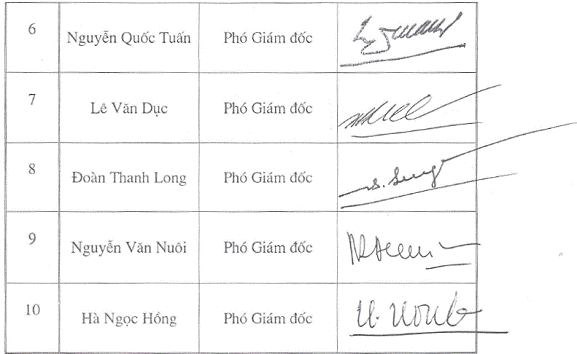 6 Nguyễn Quốc Tuấn Phó Giám đốc
7 Lê Văn Dục Phó Giám đốc
8 Đoàn Thanh Long Phó Giám đốc
9 Nguyễn Văn Nuôi Phó Giám đốc
10 Hà Ngọc Hồng Phó Giám đốc